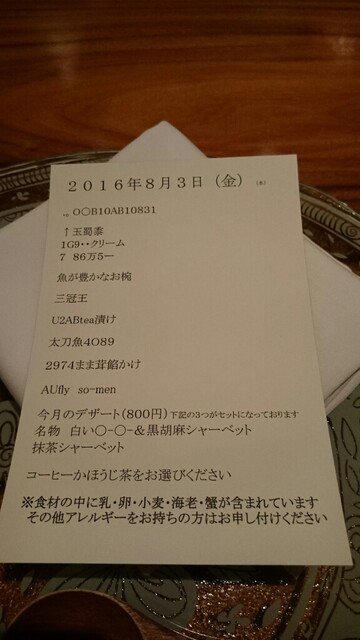 2016年8月3日（金）
〇〇B10AB10831
↑玉蜀黍
1G9・・クリーム
7 86万5―
魚が豊かなお椀
三冠王
U2ABtea漬け
太刀魚4O89
2974まま茸餡かけ
AUfly so-men
今月のデザート（800円）下記の3つがセットになっております
名物 白い〇-〇-&黒胡麻シャーベット
抹茶シャーベット
コーヒーかほうじ茶をお選びください
※食材の中に乳・卵・小麦・海老・蟹が含まれています
その他アレルギーをお持ちの方はお申し付けください